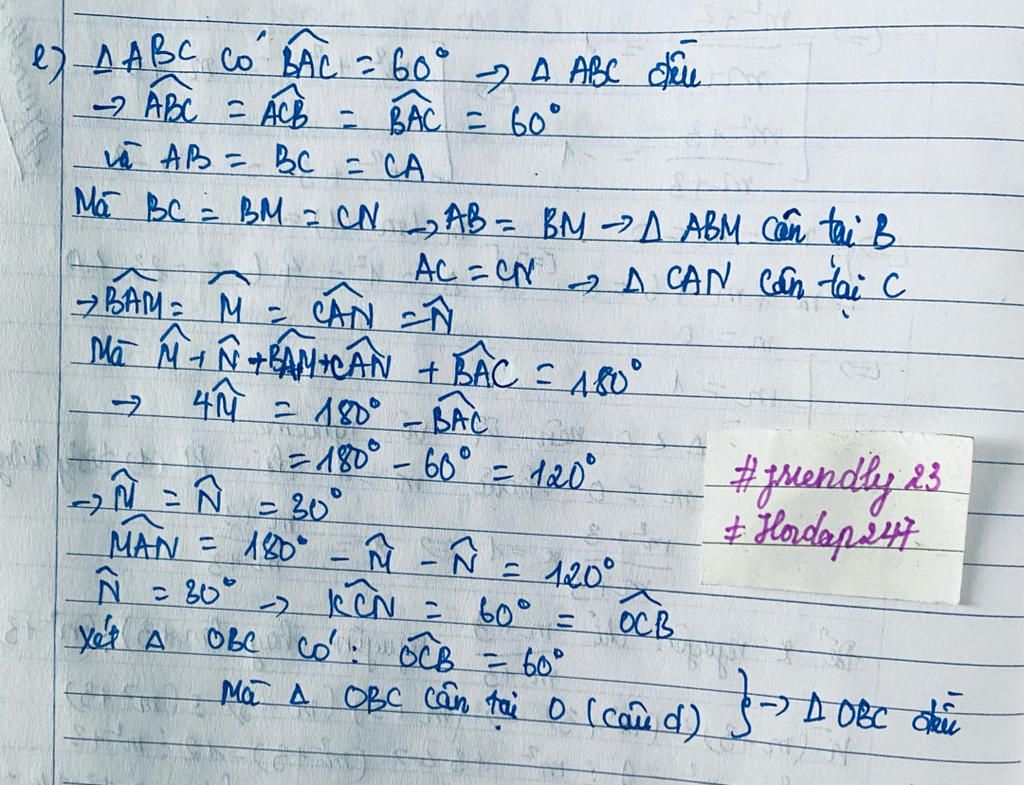 e) Δ ABC có B̂AC = 60° → Δ ABC đều
→ ÂBC = ÂCB = B̂AC = 60°
và AB = BC = CA
Mà BC = BM = CN → AB = BM → Δ ABM cân tại B
AC = CN → Δ CAN cân tại C
→ B̂AM = M̂ = ĈAN = N̂
Mà M̂ + N̂ + B̂AM + ĈAN + B̂AC = 180°
→ 4M̂ = 180° - B̂AC
= 180° - 60° = 120°
→ N̂ = N̂ = 30°
M̂AN = 180° - M̂ - N̂ = 120°
N̂ = 30° → K̂CN = 60° = ÔCB
Xét Δ OBC có: ÔCB = 60°
Mà Δ OBC cân tại O (câu d) } → Δ OBC đều
#friendly 23
# Hoidap247